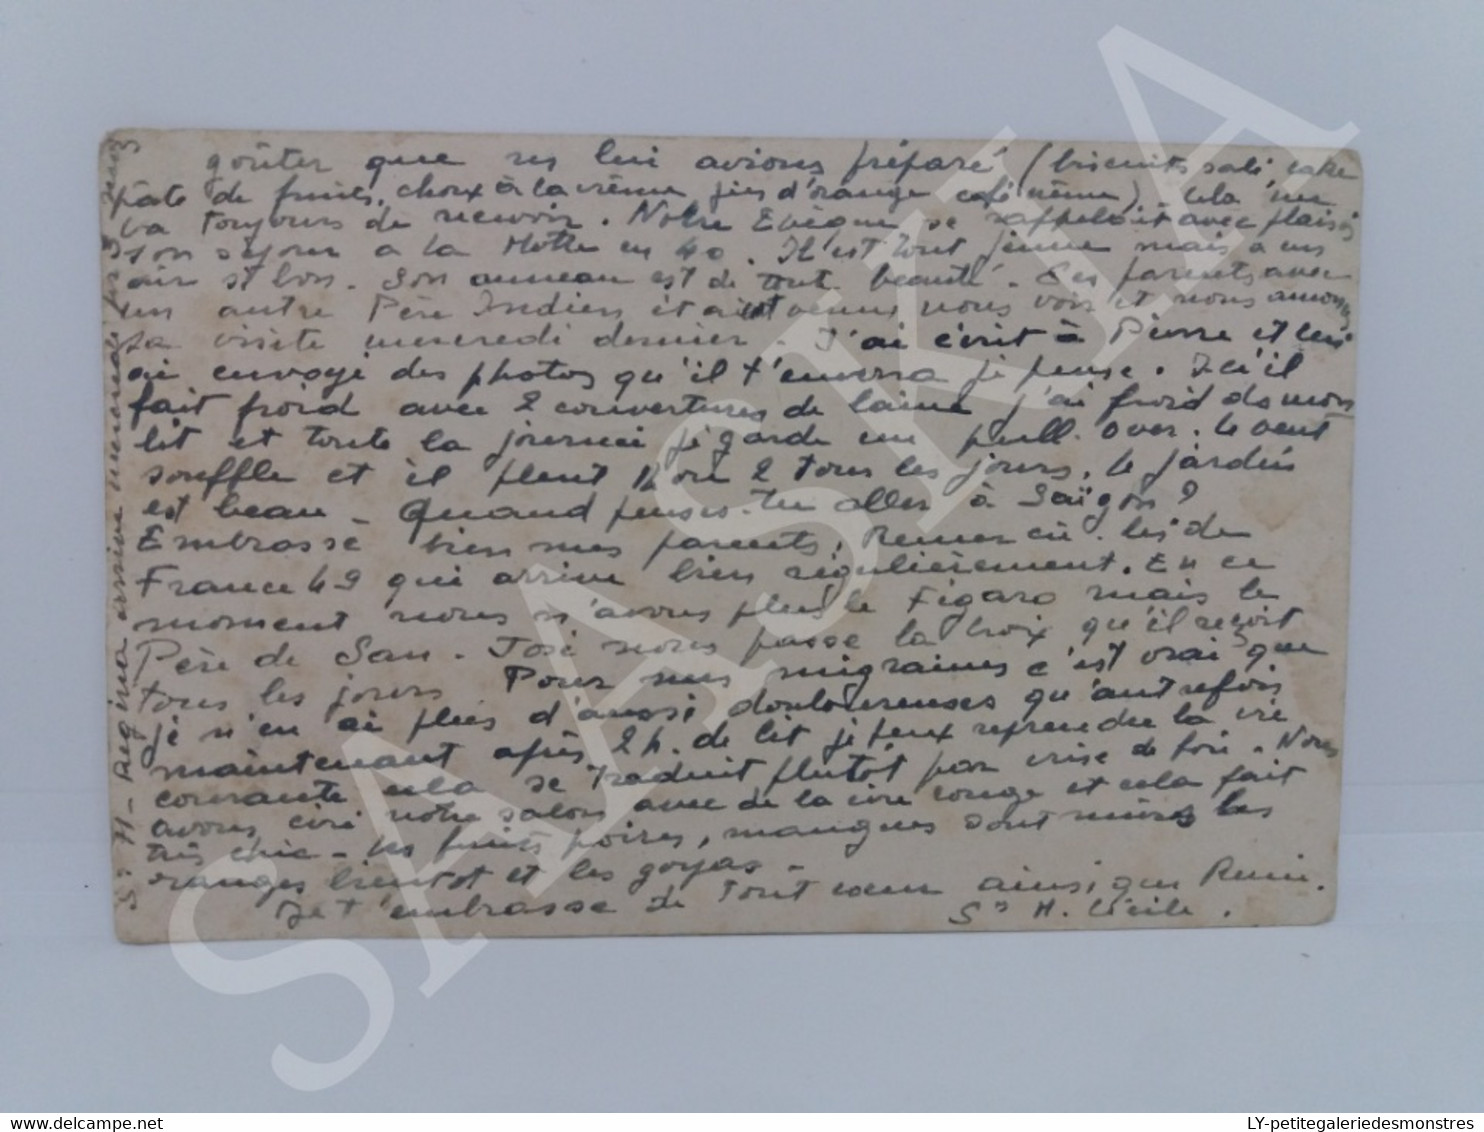 goûter que ns lui avions préparé (biscuits salé, cake
pâte de fruits, choux à la crème jus d'orange café crème). Cela me
va toujours de recevoir. Notre Evêque se rappelait avec plaisir
son séjour à la Motte en 40. Il est tout jeune mais a un
air st bon. Son anneau est de toute beauté. Ses parents avec
un autre Père Indien étaient venus nous voir et nous
sa visite mercredi dernier. J'ai écrit à Pierre et lui
ai envoyé des photos qu'il t'enverra je pense. Ici il
fait froid avec 2 couvertures de laine j'ai froid ds mon
lit et toute la journée je garde un pull-over. Le vent
souffle et il pleut 1h ou 2 tous les jours. Le jardin
est beau - Quand penses-tu aller à Saïgon?
Embrasse bien mes parents. Remercie-les de
France 49 qui arrive bien régulièrement. En ce
moment nous n'avons plus le Figaro mais le
Père de San. José nous passe la Croix qu'il reçoit
tous les jours Pour mes migraines c'est vrai que
je n'en ai plus d'aussi douloureuses qu'autrefois
maintenant après 2h. de lit je peux reprendre la vie
courante cela se traduit plutôt par crise de foie. Nous
avons ciré notre salon avec de la cire rouge et cela fait
très chic - les fruits poires, mangues sont mûres les
oranges bientôt et les goyas -
Je t'embrasse de tout cœur ainsi que Remi.
Sr M. Cécile.
Sr M- Regina arrive mercredi pr 3 jours
www.delcampe.net
LY-petitegaleriedesmonstres
SAASKIA